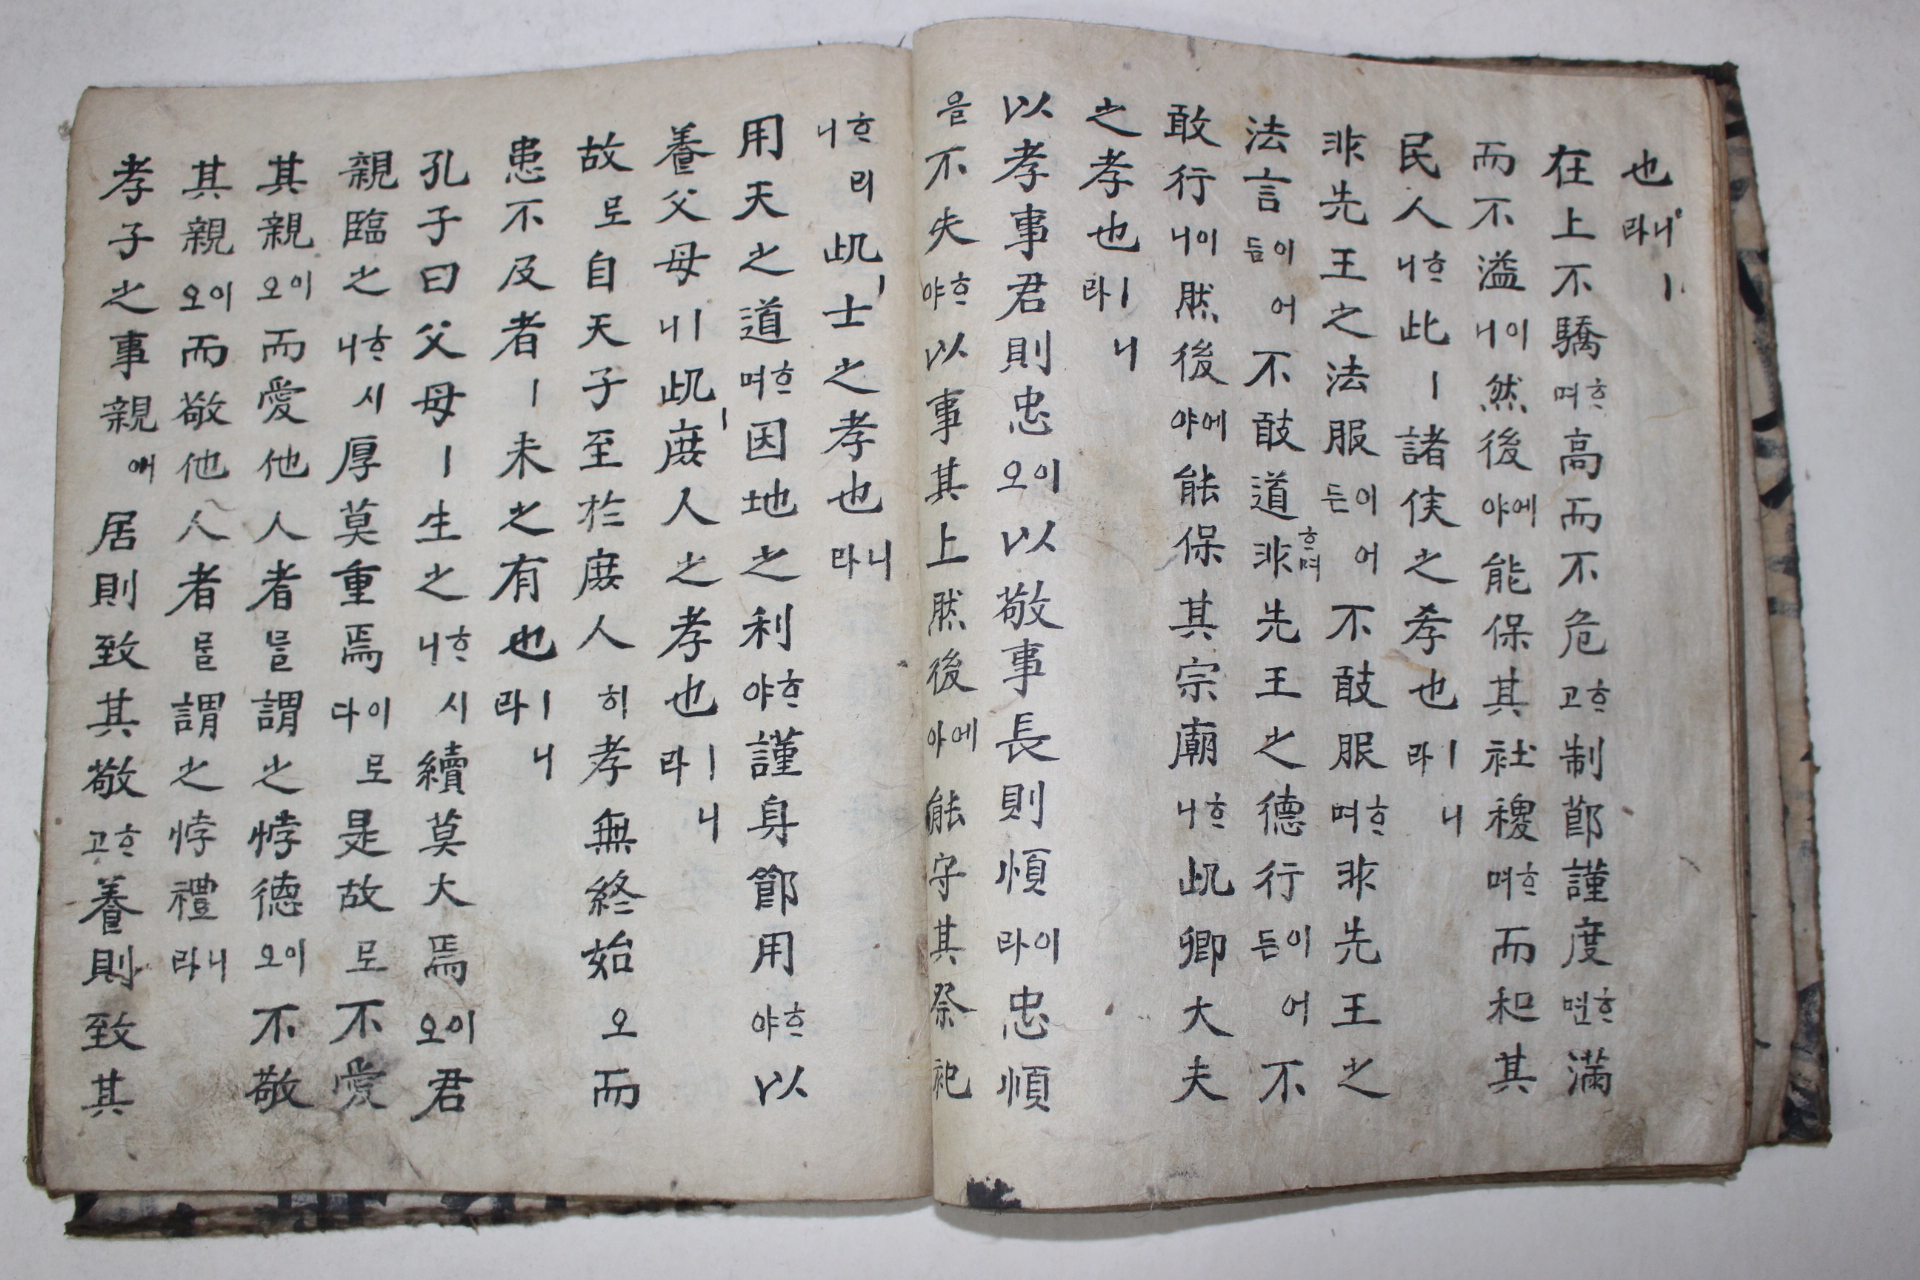 也ㅣ니라
在上不驕ᄒᆞ며高而不危ᄒᆞ고制節謹度ᄒᆞ면滿
而不溢이니然後에야能保其社稷ᄒᆞ며而和其
民人ᄒᆞ니此ㅣ諸侯之孝也ㅣ니라
非先王之法服이어든不敢服ᄒᆞ며非先王之
法言이어듬不敢道ᄒᆞ며非先王之德行이어든不
敢行이니然後에야能保其宗廟ᄒᆞ니此卿大夫
之孝也ㅣ니라
以孝事君則忠이오以敬事長則順이라忠順
을不失ᄒᆞ야以事其上然後에야能守其祭祀
ᄒᆞ리니此ㅣ士之孝也니라
用天之道ᄒᆞ며因地之利ᄒᆞ야謹身節用ᄒᆞ야以
養父母ㅣ니此ㅣ庶人之孝也ㅣ니라
故로自天子至於庶人히孝無終始오而
患不及者ㅣ未之有也ㅣ니라
孔子曰父母ㅣ生之ᄒᆞ시니續莫大焉이오君
親臨之ᄒᆞ시니厚莫重焉이로다是故로不愛
其親이오而愛他人者를謂之悖德이오不敬
其親이오而敬他人者를謂之悖禮니라
孝子之事親애居則致其敬ᄒᆞ고養則致其